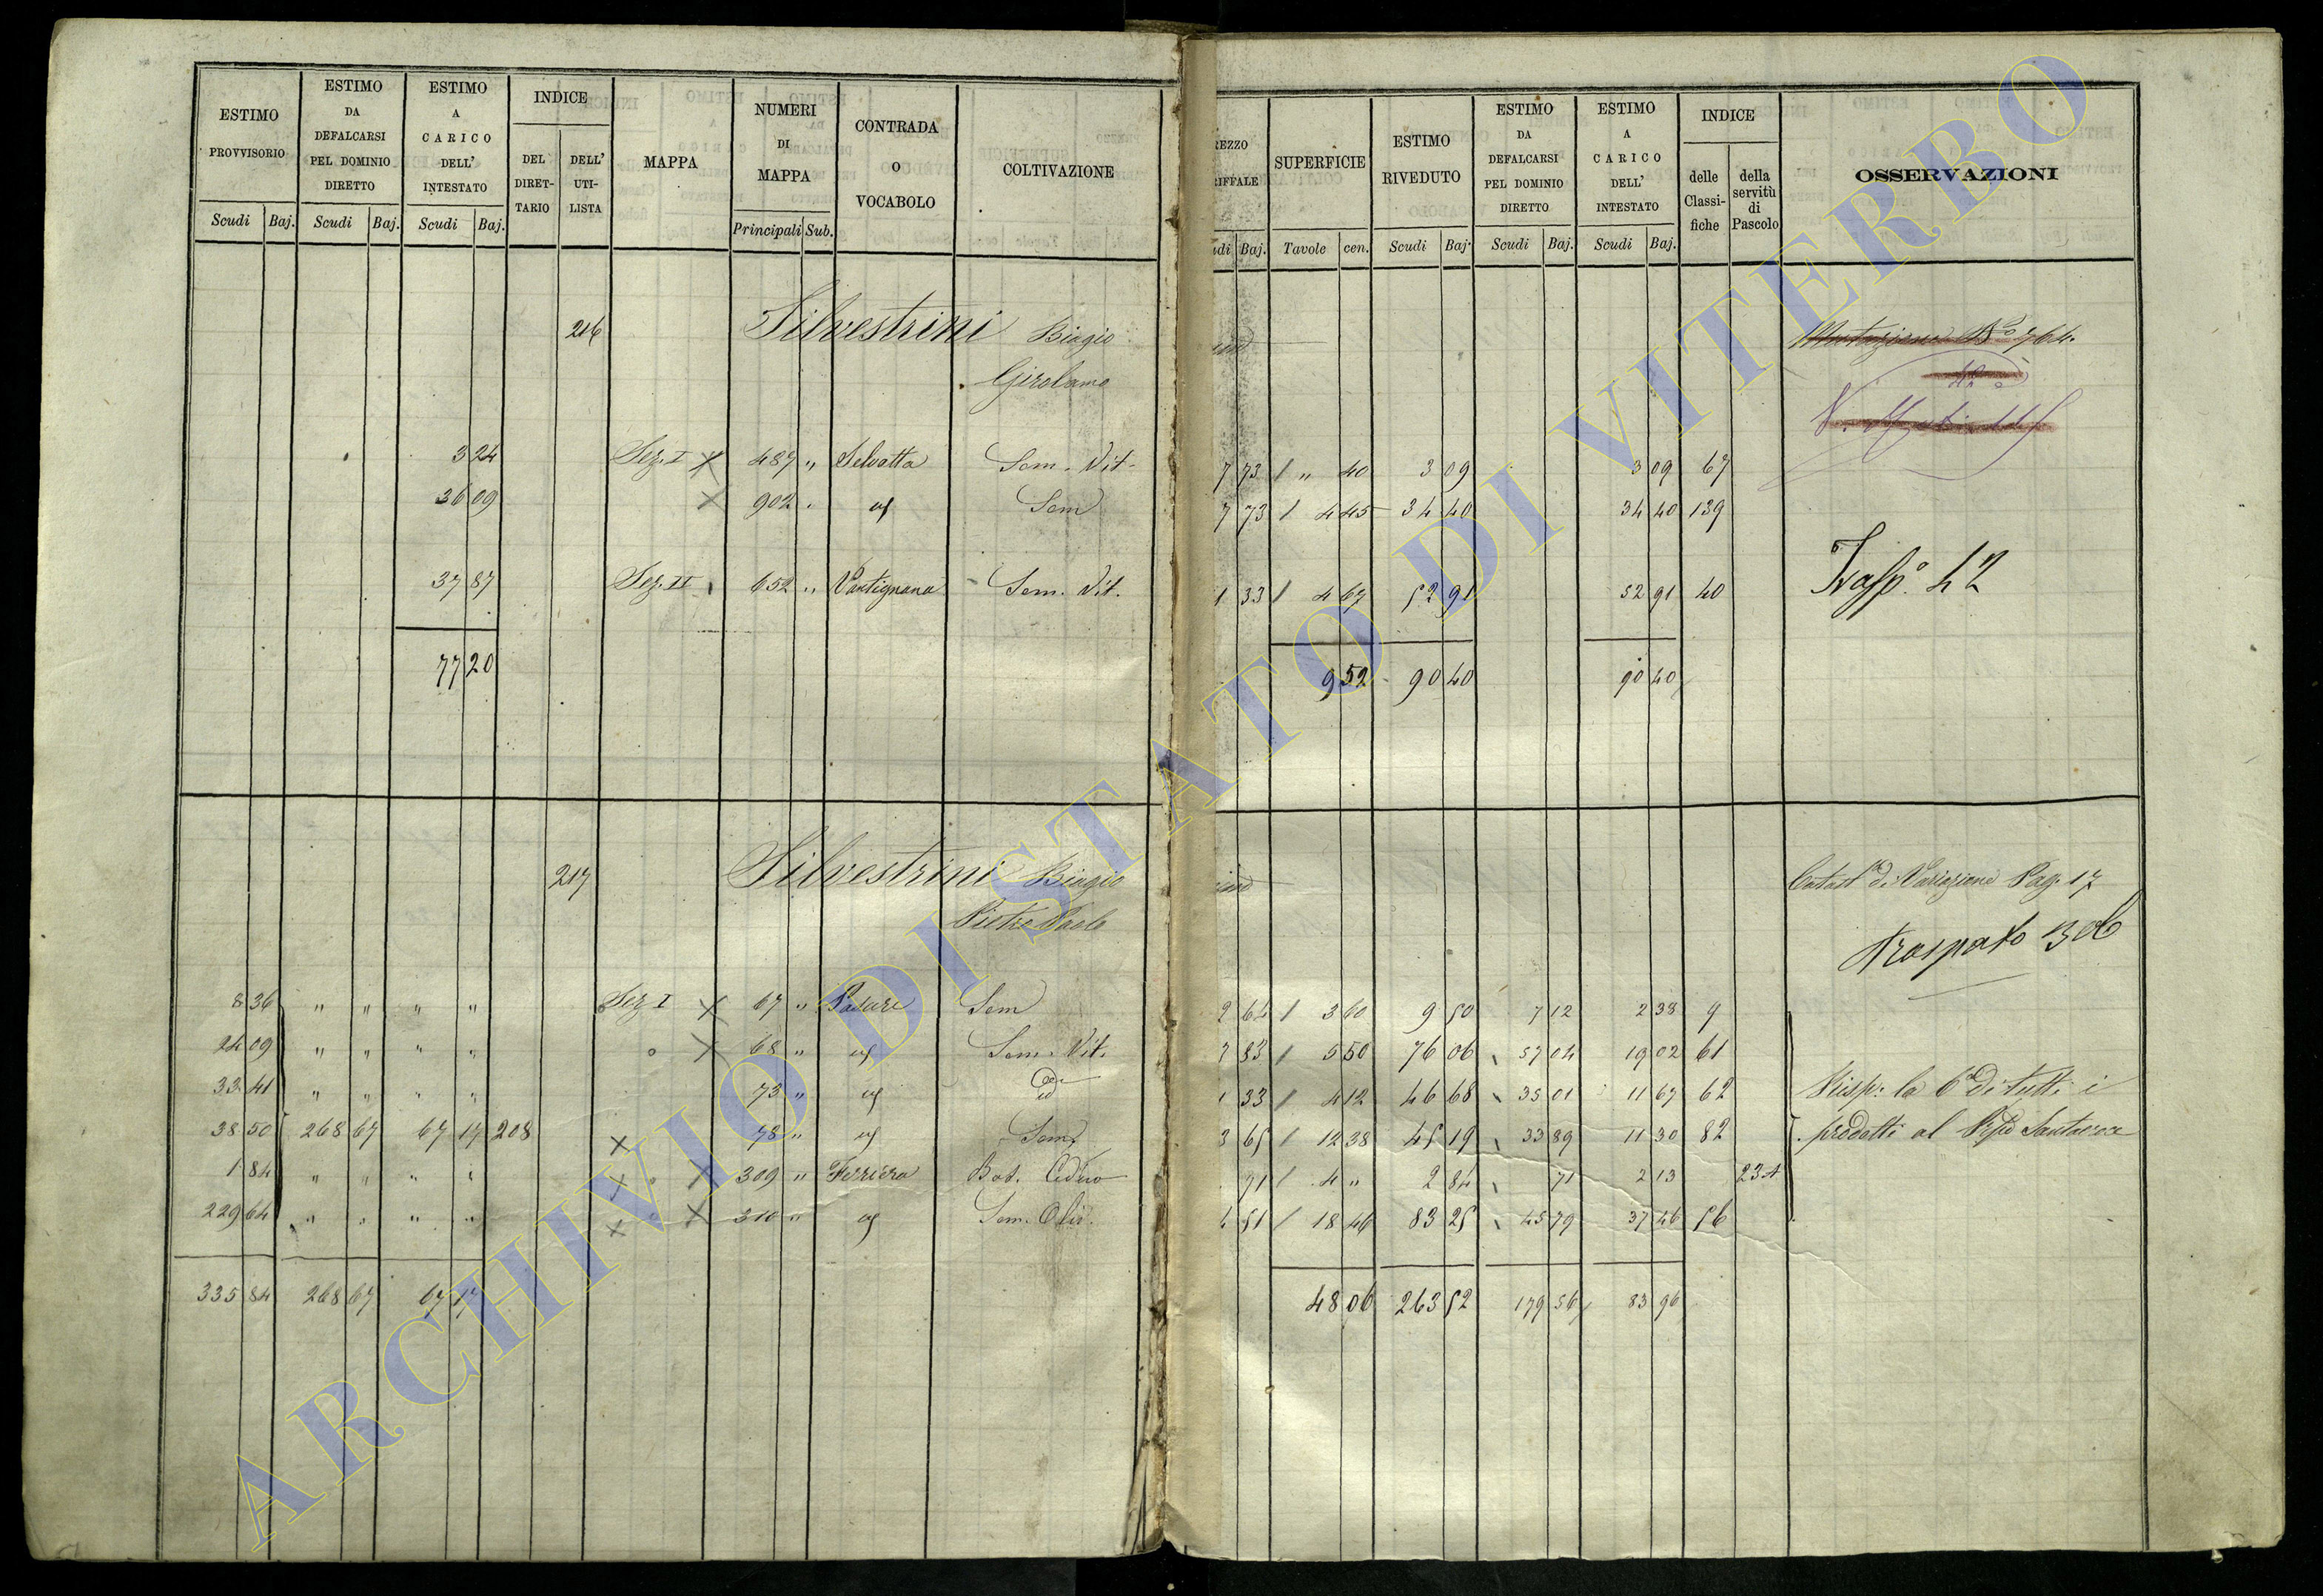 ESTIMO PROVVISORIO
ESTIMO DA DEFALCARSI PEL DOMINIO DIRETTO
ESTIMO A CARICO DELL' INTESTATO
INDICE
DEL DIRETTARIO
DELL' UTILISTA
MAPPA
NUMERI DI MAPPA
CONTRADA O VOCABOLO
COLTIVAZIONE
Scudi Baj. Scudi Baj. Scudi Baj. Principali Sub.
216 Silvestrini Biagio
Girolamo
3 24 Sez. I 487 " Selvatta Sem. Vit.
36 09 902 Sem
37 87 Sez. II 652 " Sem. Vit.
77 20
217 Silvestrini Biagio
Pietro Paolo
8 36 " " " " Sez I 67 " Sem
24 09 " " " " 68 " Sem. Vit.
33 41 " " " " 73 "
38 50 268 67 67 17 208 78 " Sem
1 84 " " " " 309 " Ferriera
229 64 " " " " 310 " Sem. Oliv.
335 84 268 67 67 17
SUPERFICIE
ESTIMO RIVEDUTO
ESTIMO DA DEFALCARSI PEL DOMINIO DIRETTO
ESTIMO A CARICO DELL' INTESTATO
INDICE
delle Classifiche
della servitù di Pascolo
OSSERVAZIONI
Baj. Tavole cen. Scudi Baj. Scudi Baj. Scudi Baj.
Mutazione No 764.
7 73 " 40 3 09 3 09 67
7 73 4 45 34 40 34 40 139
1 33 4 67 52 91 52 91 40
Trasp.o 42
9 52 90 40 90 40
Catast di Variazione Pag. 17
Trasporto
2 64 3 60 9 50 7 12 2 38 9
7 83 5 50 76 06 57 04 19 02 61
1 33 4 12 46 68 35 01 11 67 62
Risp: la 6a di tutti i
3 65 12 38 45 19 33 89 11 30 82
prodotti al
71 4 " 2 84 71 2 13 234
4 51 18 46 83 25 45 79 37 46 56
48 06 263 52 179 56 83 96
ARCHIVIO DI STATO DI VITERBO